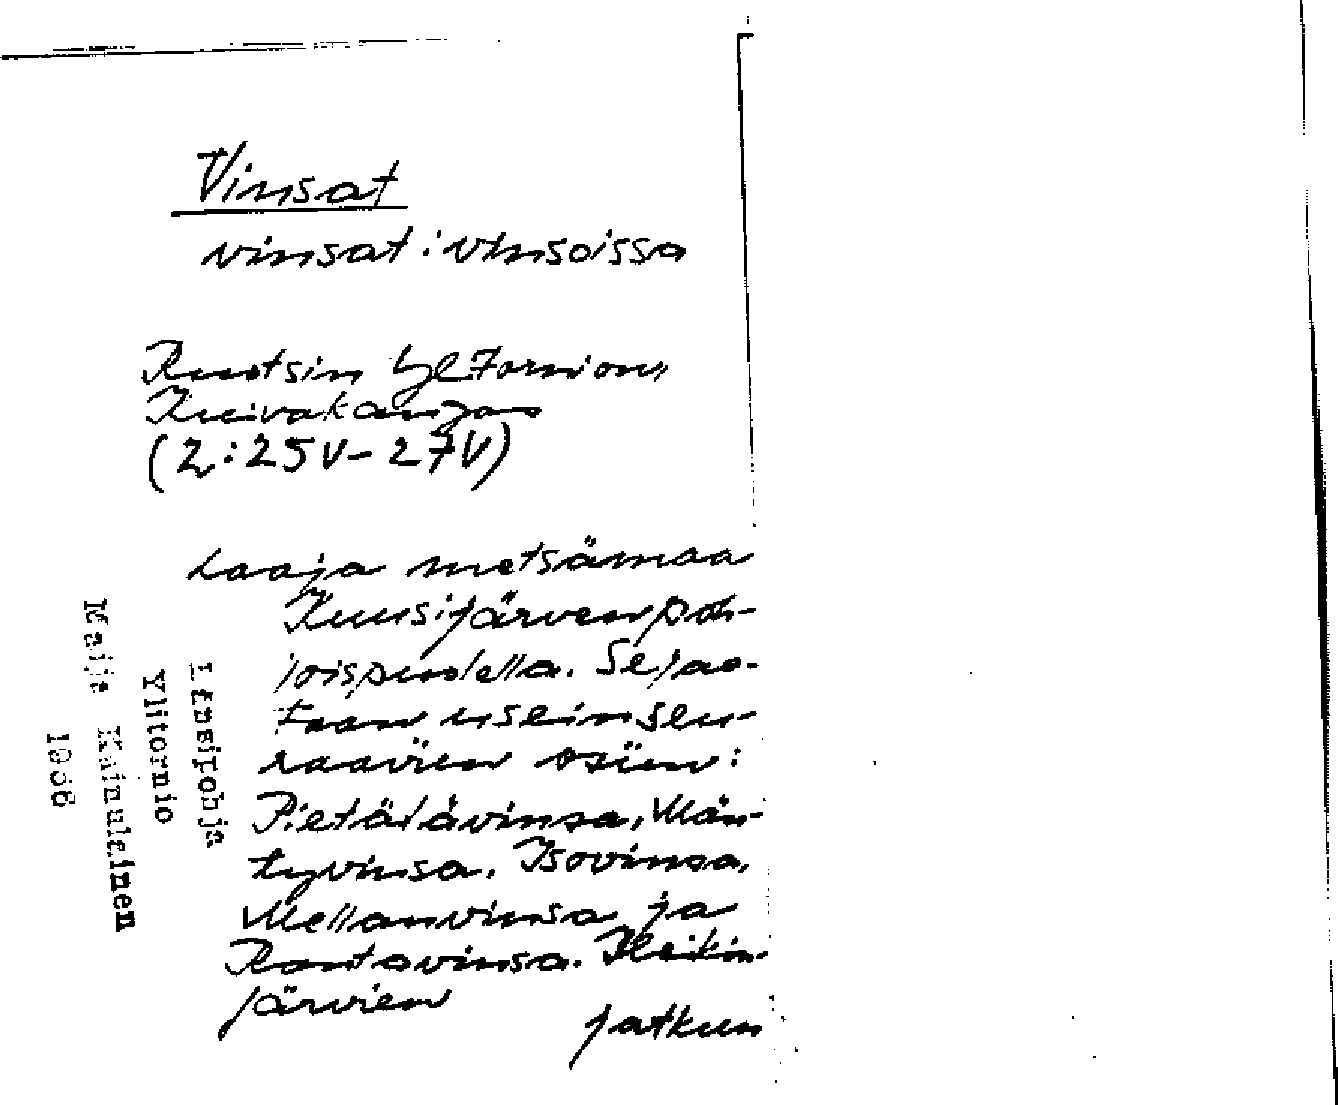 Vinsat
vinsat : vinsoissa
Ruotsin Yl Tornion,
Kuivakangas
(2:25V-27V)
Laaja metsämaa
Kuusijärven poh-
joispuolella. Se jae-
taan usein seu-
raavien osiin:
Pietälävinsa, Män-
tyvinsa, Isovinsa,
Mellanvinsa ja
Rantavinsa. Heikin-
järvien
jatkuu
Länsipohja
Ylitornio
Maija Kainulainen
1966